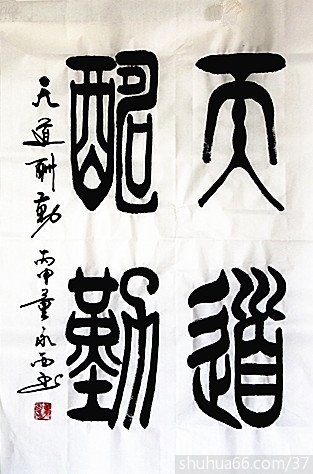 天道
酬勤
天道酬勤 丙申董永西书
shuhua66.com/37